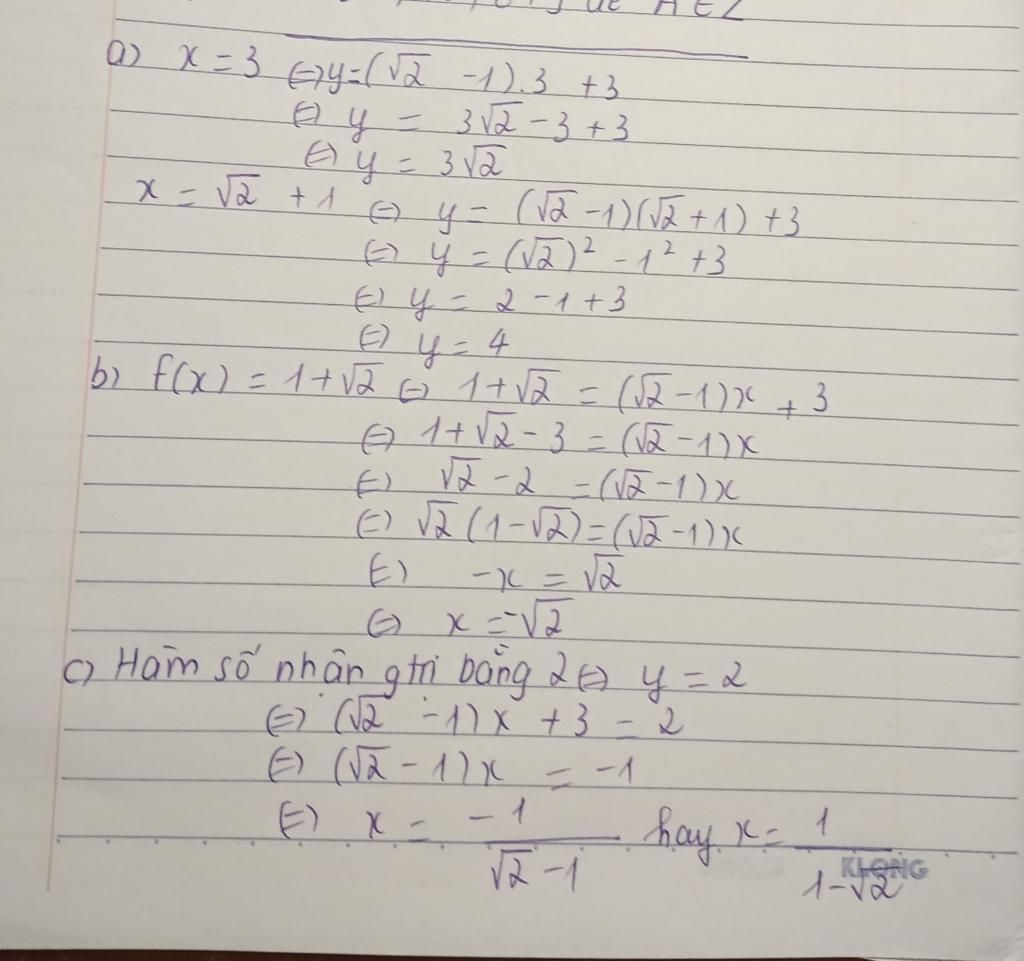 a) x = 3 ⇔ y = (√2 - 1).3 + 3
⇔ y = 3√2 - 3 + 3
⇔ y = 3√2
x = √2 + 1 ⇔ y = (√2 - 1)(√2 + 1) + 3
⇔ y = (√2)² - 1² + 3
⇔ y = 2 - 1 + 3
⇔ y = 4
b) f(x) = 1 + √2 ⇔ 1 + √2 = (√2 - 1)x + 3
⇔ 1 + √2 - 3 = (√2 - 1)x
⇔ √2 - 2 = (√2 - 1)x
⇔ √2 (1 - √2) = (√2 - 1)x
⇔ -x = √2
⇔ x = -√2
c) Hàm số nhận gtri bằng 2 ⇔ y = 2
⇔ (√2 - 1)x + 3 = 2
⇔ (√2 - 1)x = -1
⇔ x = -1/(√2 - 1) hay x = 1/(1 - √2)
KLONG